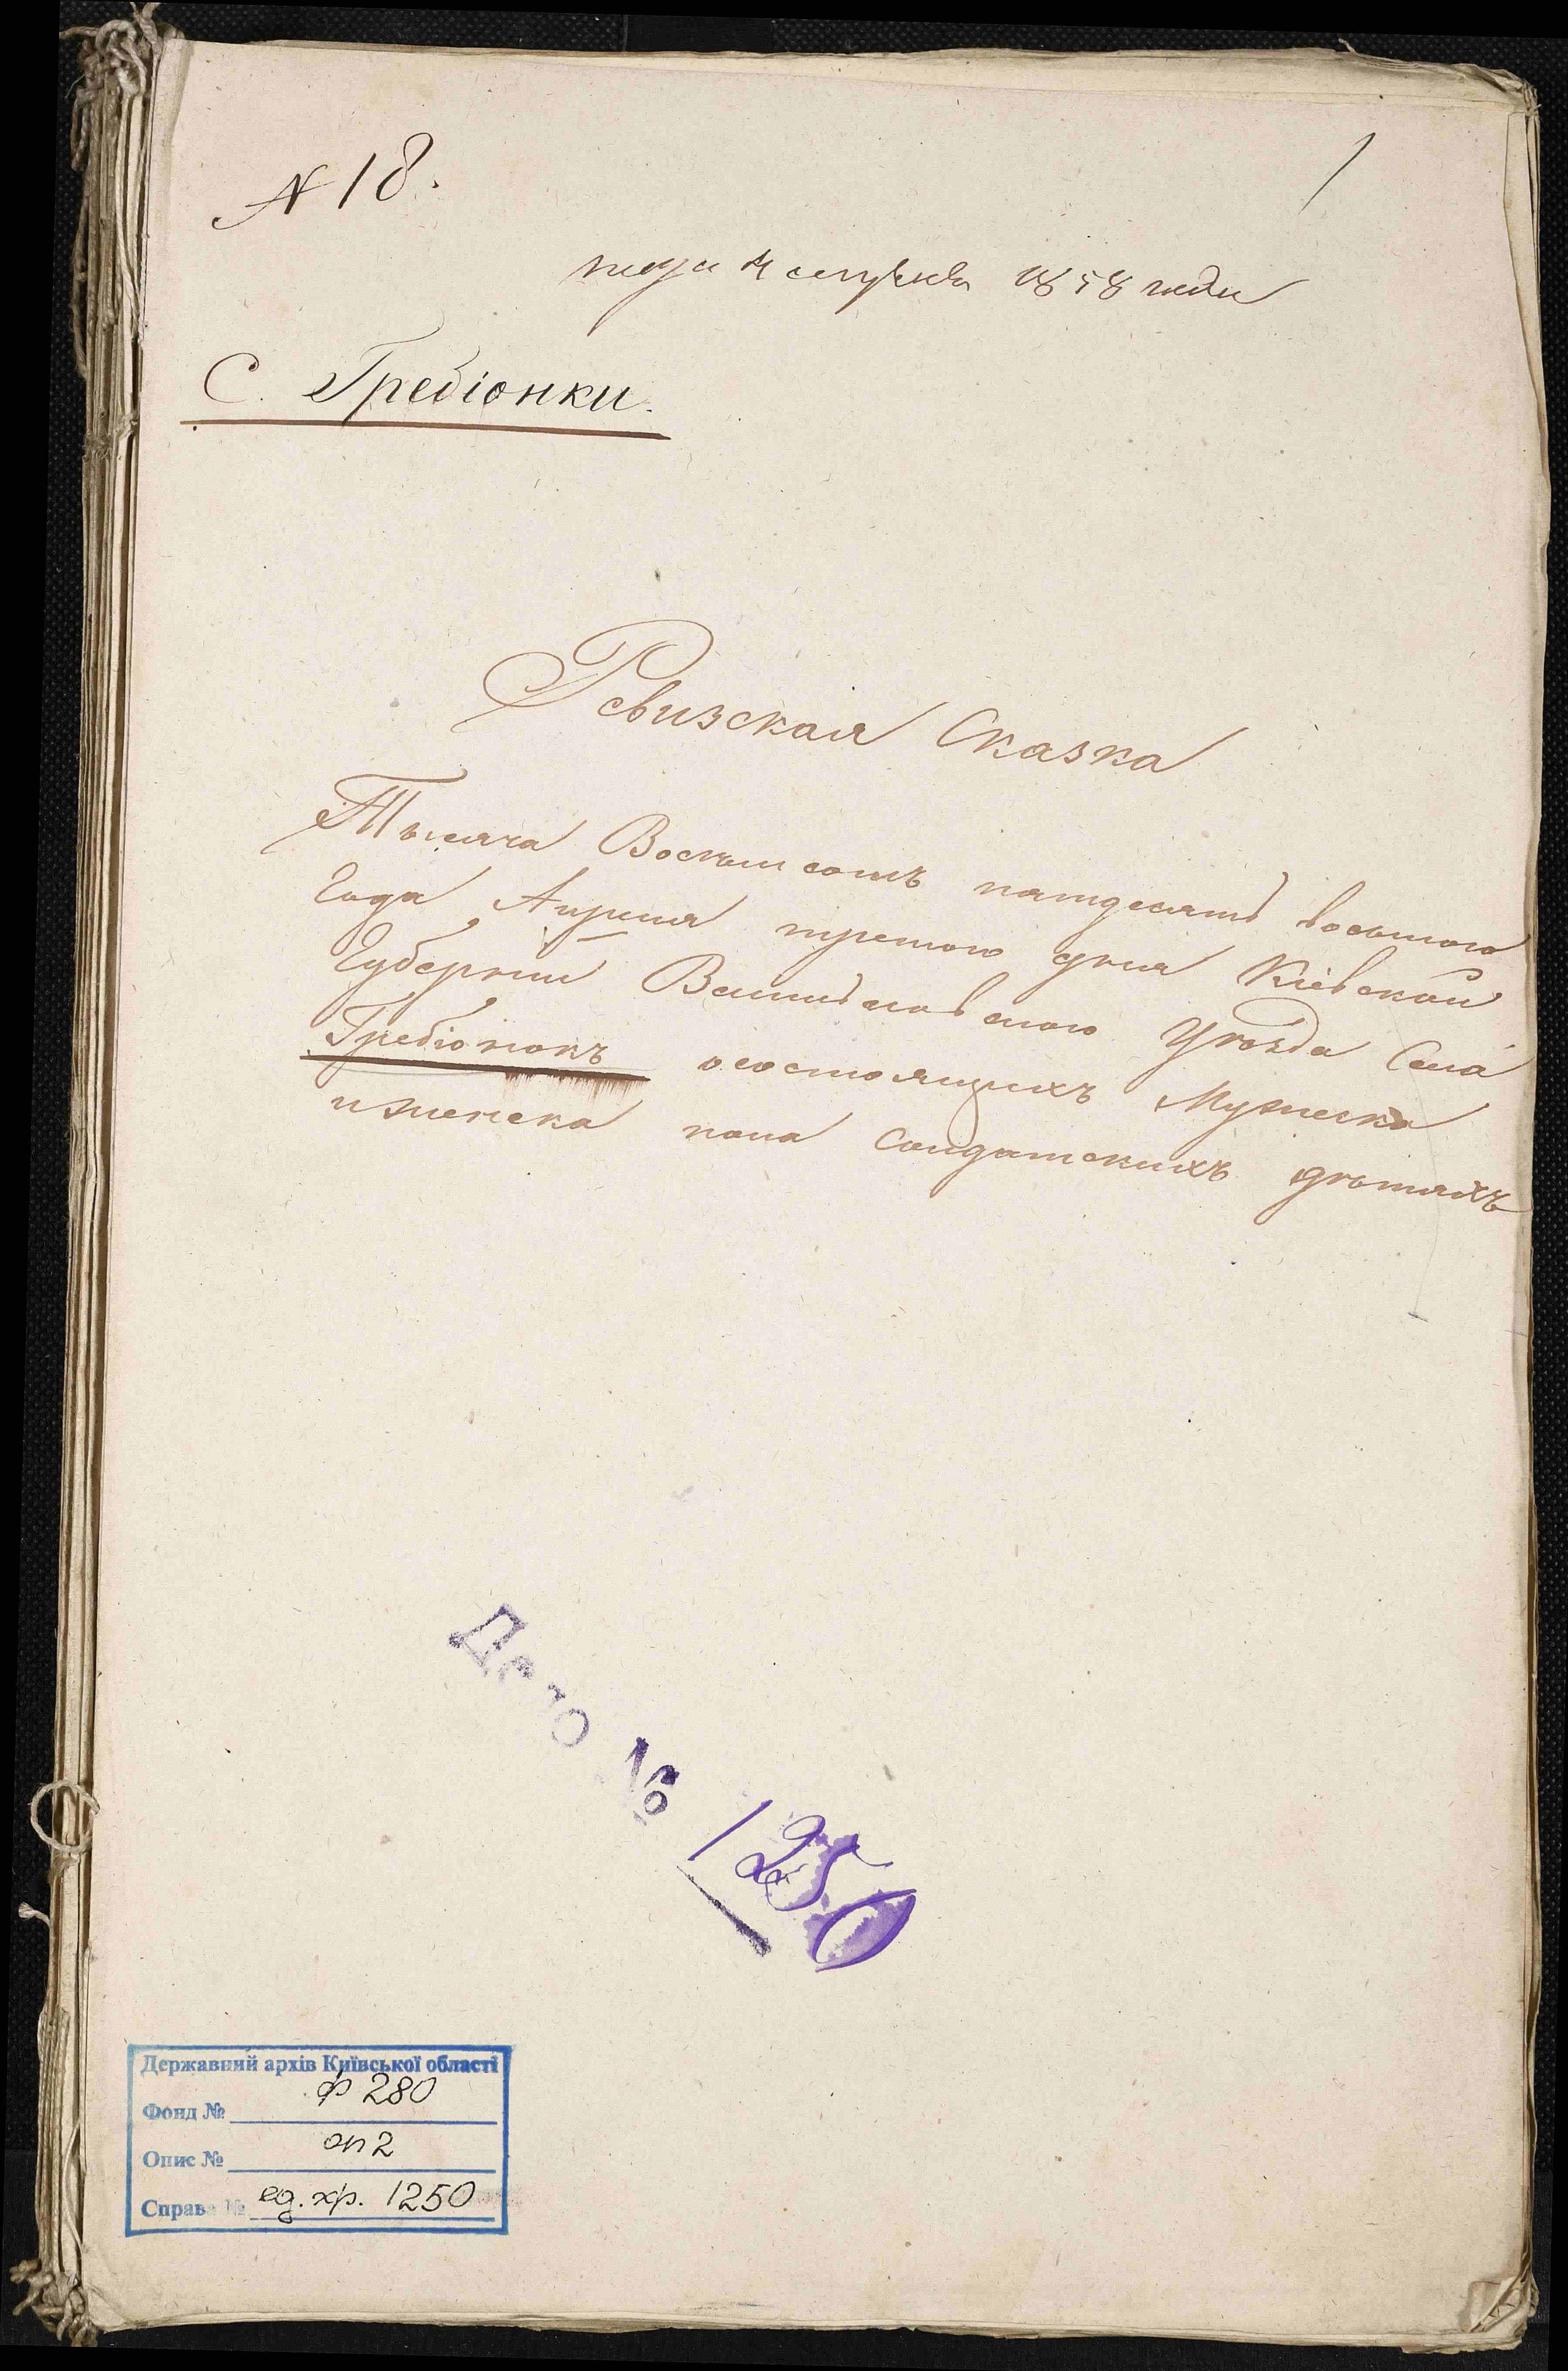 № 18.
1
1858 года
С. Гребіонки.
Ревизская Сказка
Тысяча Восемьсотъ пятдесятъ восьмого
Года Апреля третого дня Кіевской
Губернии Васильковского Уѣзда Села
Гребіонокъ осостоящихъ Мужеска
и женска пола Солдатскихъ дѣтяхъ
Дело № 1250
Державний архів Київської області
Фонд № ф 280
Опис № оп 2
Справа № ед. хр. 1250